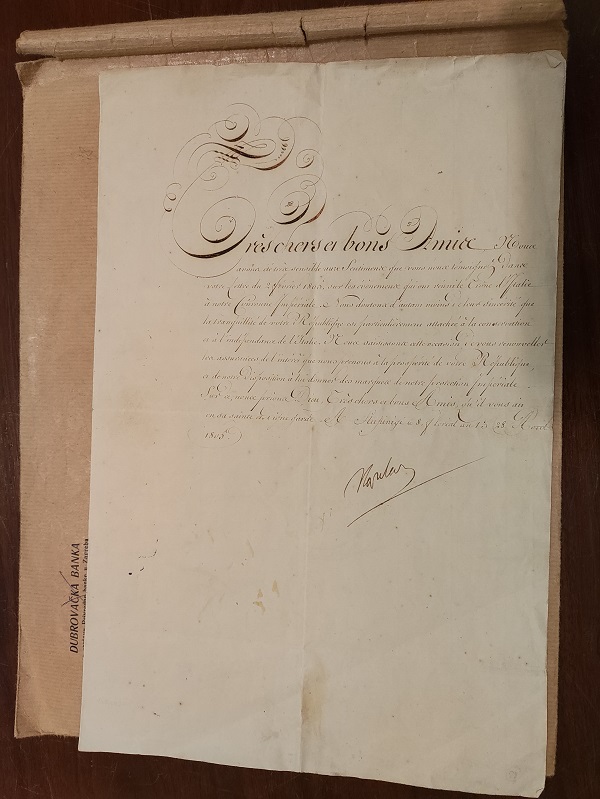 Très chers et bons Amis, Nous
avons été très sensible aux Sentimens que vous nous témoignez Dans
votre lettre du 2 1805, sur les évènemens qui ont réuni le Trône d'Italie
à notre Couronne Impériale. Nous doutons d'autant moins de leur sincérité que
la tranquillité de votre République est particulièrement attachée à la conservation
et à l'indépendance de l'Italie. Nous saisissons cette occasion de vous renouveller
les assurances de l'intérêt que nous prenons à la prospérité de votre République
et de notre Disposition à lui donner des marques de notre protection Impériale.
Sur ce, nous prions Dieu, Très chers et bons Amis, qu'il vous ait
en sa sainte et digne garde. A le 8 floréal an 13 (28 Avril
1805.)
DUBROVAČKA BANKA